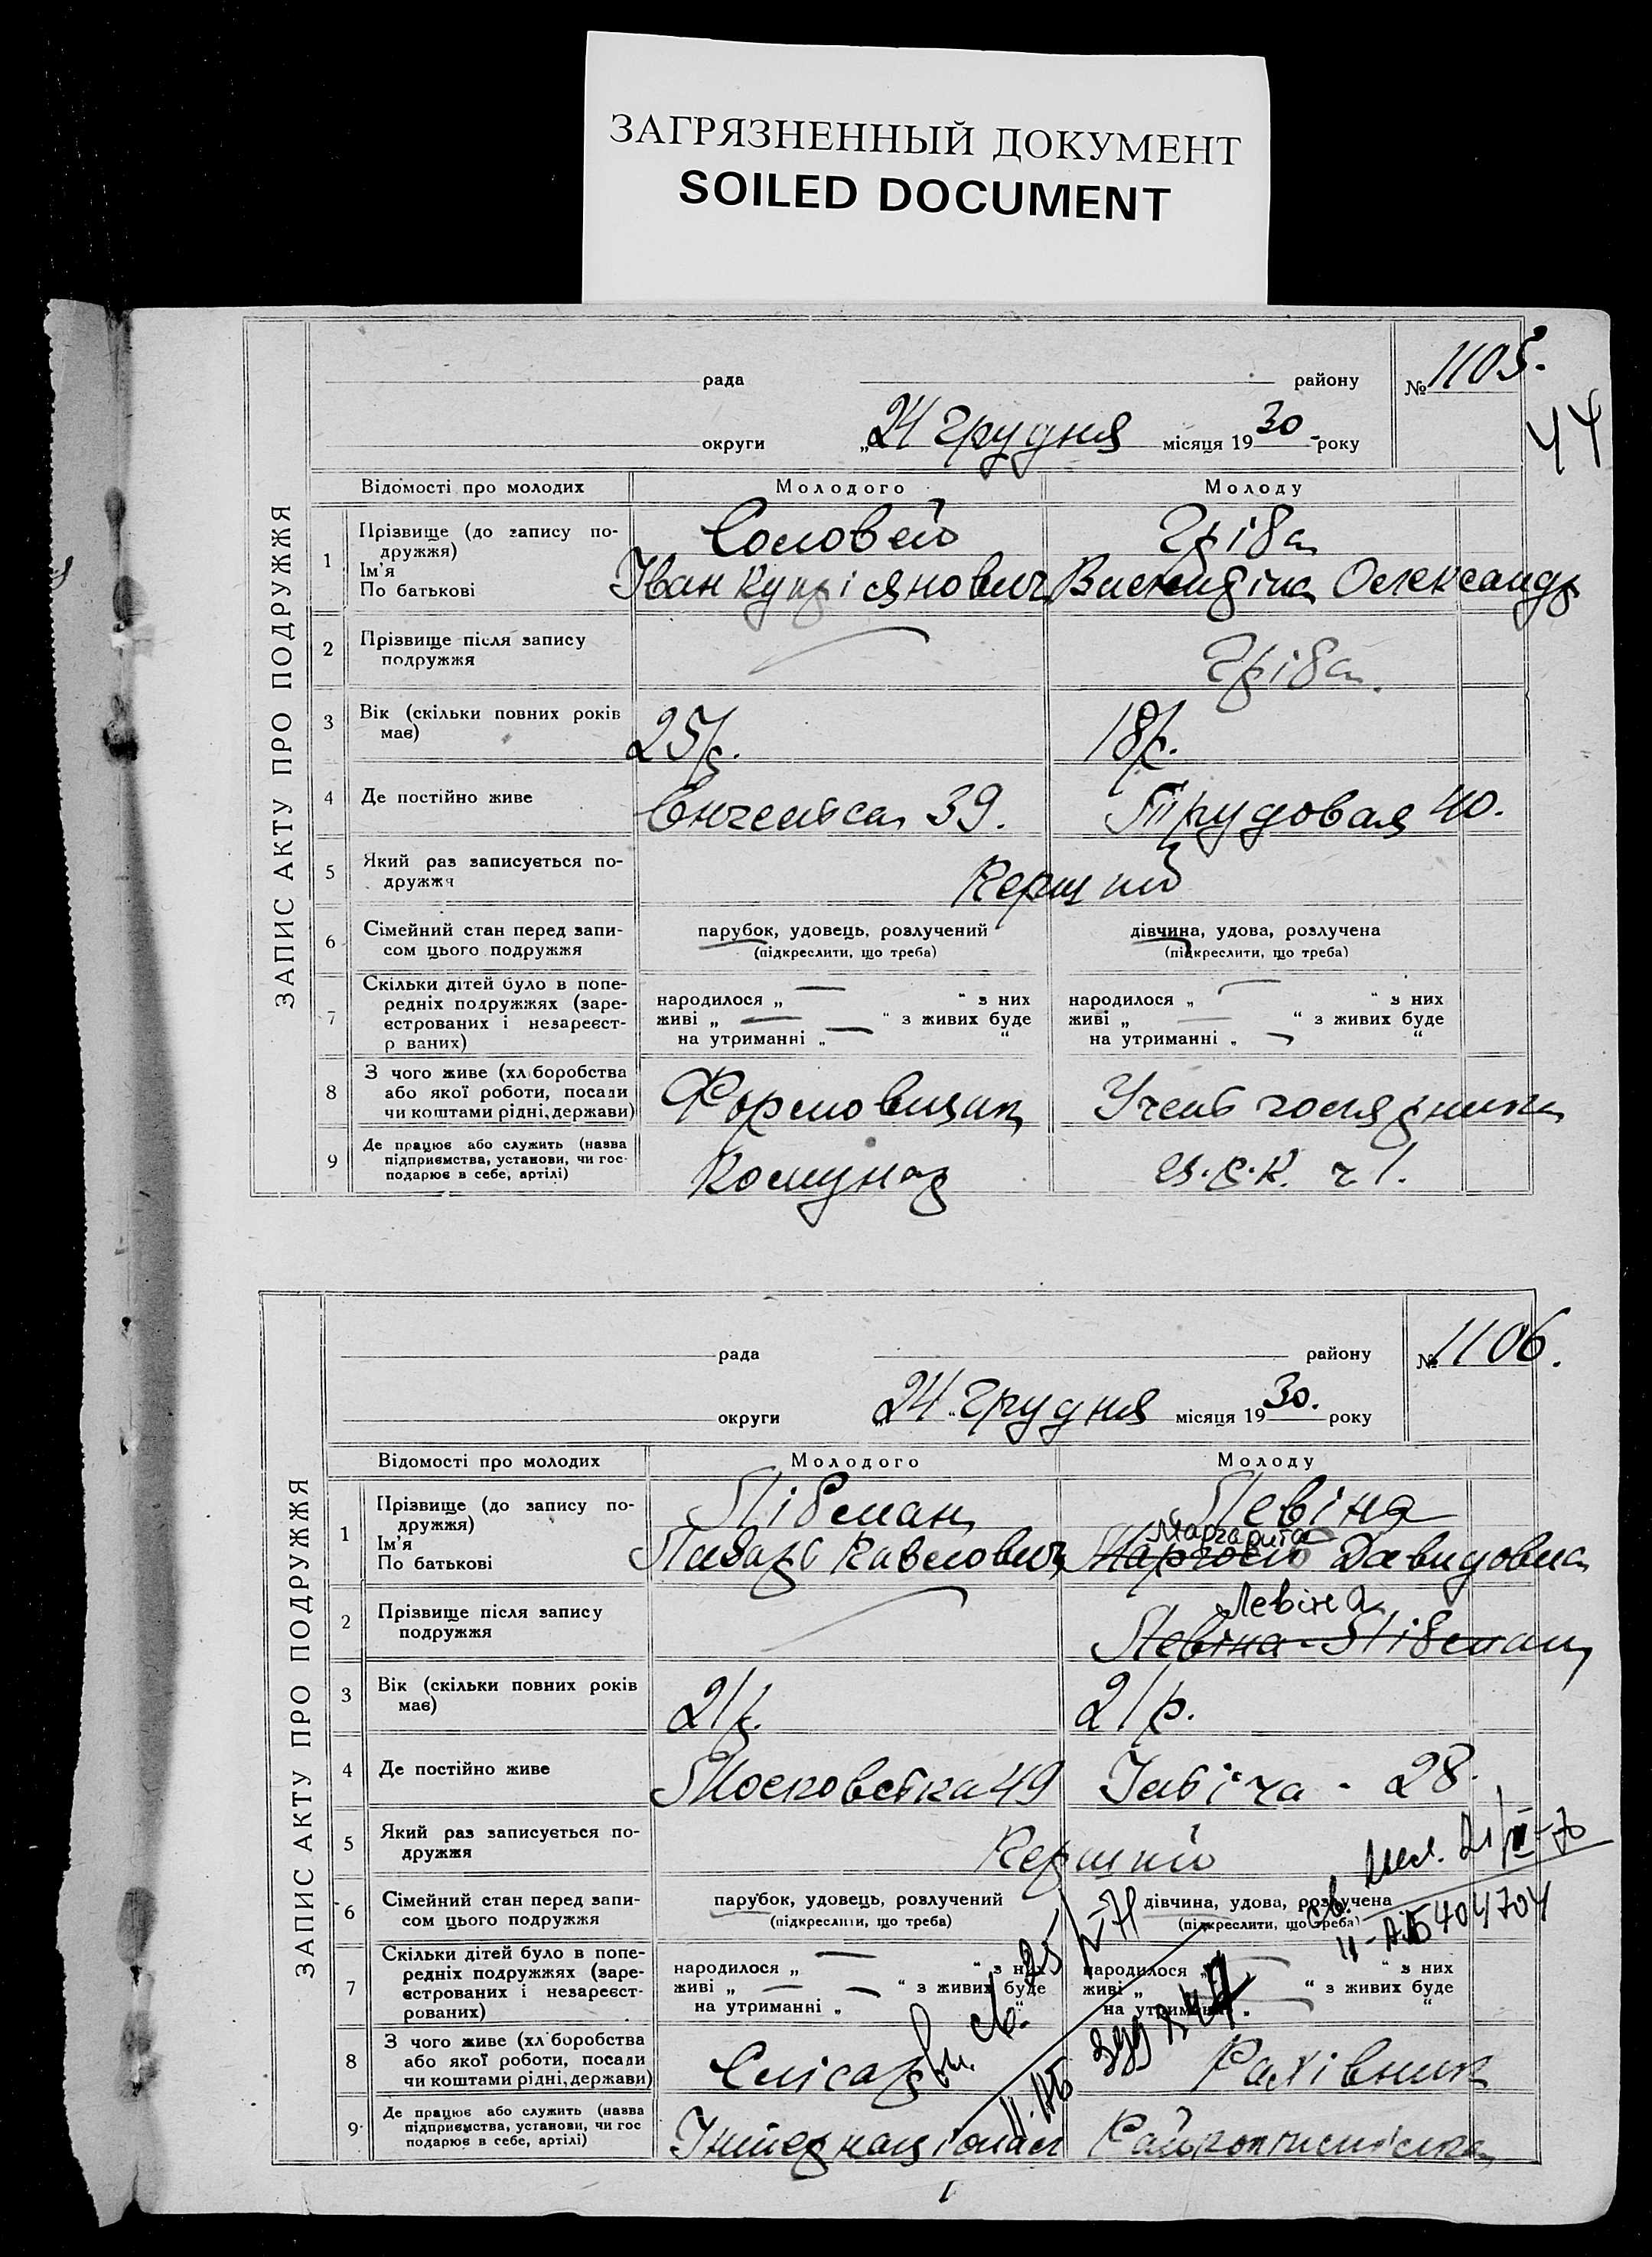 ЗАГРЯЗНЕННЫЙ ДОКУМЕНТ
SOILED DOCUMENT
рада району № 1105.
44
округи „24 грудня місяця 1930 року
ЗАПИС АКТУ ПРО ПОДРУЖЖЯ
Відомості про молодих Молодого Молоду
1 Прізвище (до запису по-
дружжя)
Ім'я
По батькові
Соловей Гріва
Іван Купріянович Олександр
2 Прізвище після запису
подружжя
Гріва.
3 Вік (скільки повних років
має)
25 р. 18 р.
4 Де постійно живе
Енгельса 39. Трудовая 40.
5 Який раз записується по-
дружжя
Перший
6 Сімейний стан перед запи-
сом цього подружжя
парубок, удовець, розлучений дівчина, удова, розлучена
(підкреслити, що треба) (підкреслити, що треба)
7 Скільки дітей було в попе-
редніх подружжях (заре-
єстрованих і незареєст-
р ваних)
народилося „ — “ з них народилося „ — “ з них
живі „ — “ з живих буде живі „ — “ з живих буде
на утриманні „ — “ на утриманні „ — “
8 З чого живе (хл боробства
або якої роботи, посади
чи коштами рідні, держави)
Формовщик
9 Де працює або служить (назва
підприємства, установи, чи гос-
подарює в себе, артілі)
Комунар ч 1.
рада району № 1106.
округи „24 “ грудня місяця 1930. року
ЗАПИС АКТУ ПРО ПОДРУЖЖЯ
Відомості про молодих Молодого Молоду
1 Прізвище (до запису по-
дружжя)
Ім'я
По батькові
Лібман Левіна
Маргарита
Лазарь Павлович Давидовна
2 Прізвище після запису
подружжя
Левіна
Левіна-Лібман
3 Вік (скільки повних років
має)
21 р. 21 р.
4 Де постійно живе
Московська 49 28.
5 Який раз записується по-
дружжя
Перший
6 Сімейний стан перед запи-
сом цього подружжя
парубок, удовець, розлучений дівчина, удова, розлучена
(підкреслити, що треба) (підкреслити, що треба)
II-АБ 404704
7 Скільки дітей було в попе-
редніх подружжях (заре-
єстрованих і незареєст-
рованих)
народилося „ — “ з них народилося „ — “ з них
живі „ — “ з живих буде живі „ — “ з живих буде
на утриманні „ — “ на утриманні „ — “
8 З чого живе (хл боробства
або якої роботи, посади
чи коштами рідні, держави)
Слісар Рахівник
9 Де працює або служить (назва
підприємства, установи, чи гос
подарює в себе, артілі)
Інтернаціонал